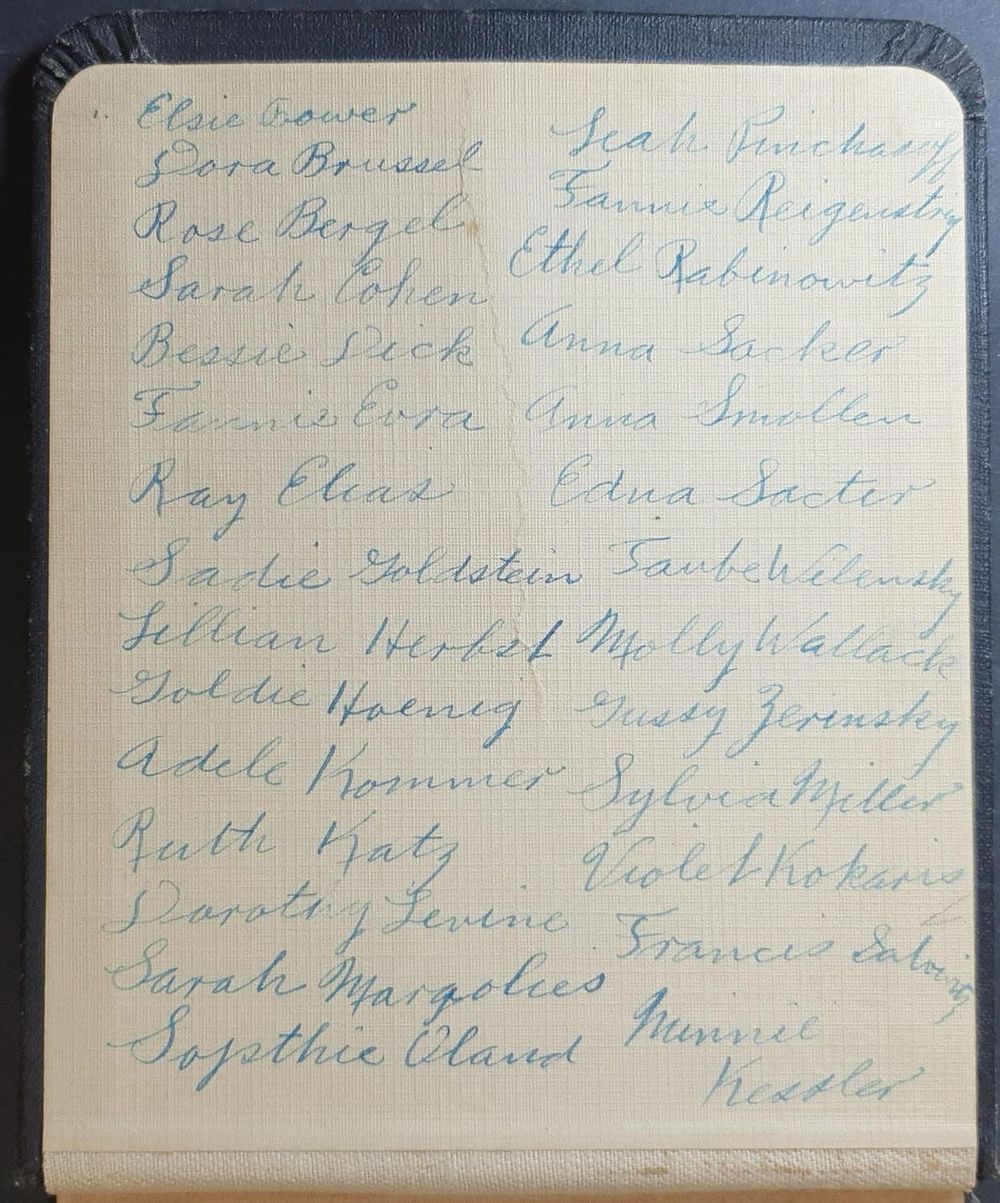 Elsie Bower
Dora Brussel
Rose Bergel
Sarah Cohen
Bessie Dick
Fannie Evra
Ray Elias
Sadie Goldstein
Lillian Herbst
Goldie Hoenig
Adele Kommer
Ruth Katz
Dorothy Levine
Sarah Margolies
Sopthie Oland
Leah Pinchasoff
Fannie
Ethel Rabinowitz
Anna Sacker
Anna Smollen
Edna Sacter
Taube Wilensky
Molly Wallack
Gussy Zerinsky
Sylvia Miller
Violet Kokaris
Francis
Minnie
Kessler